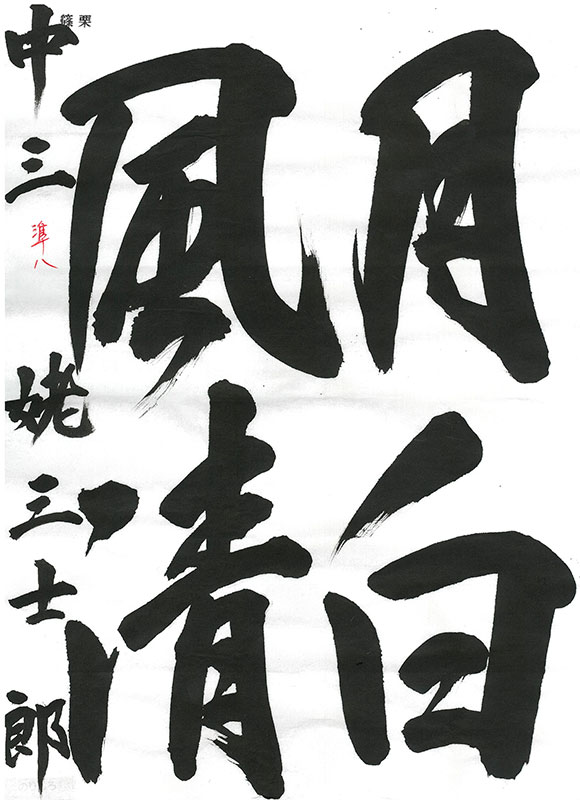 月白
風清
篠栗
中三 準八 姥三士郎